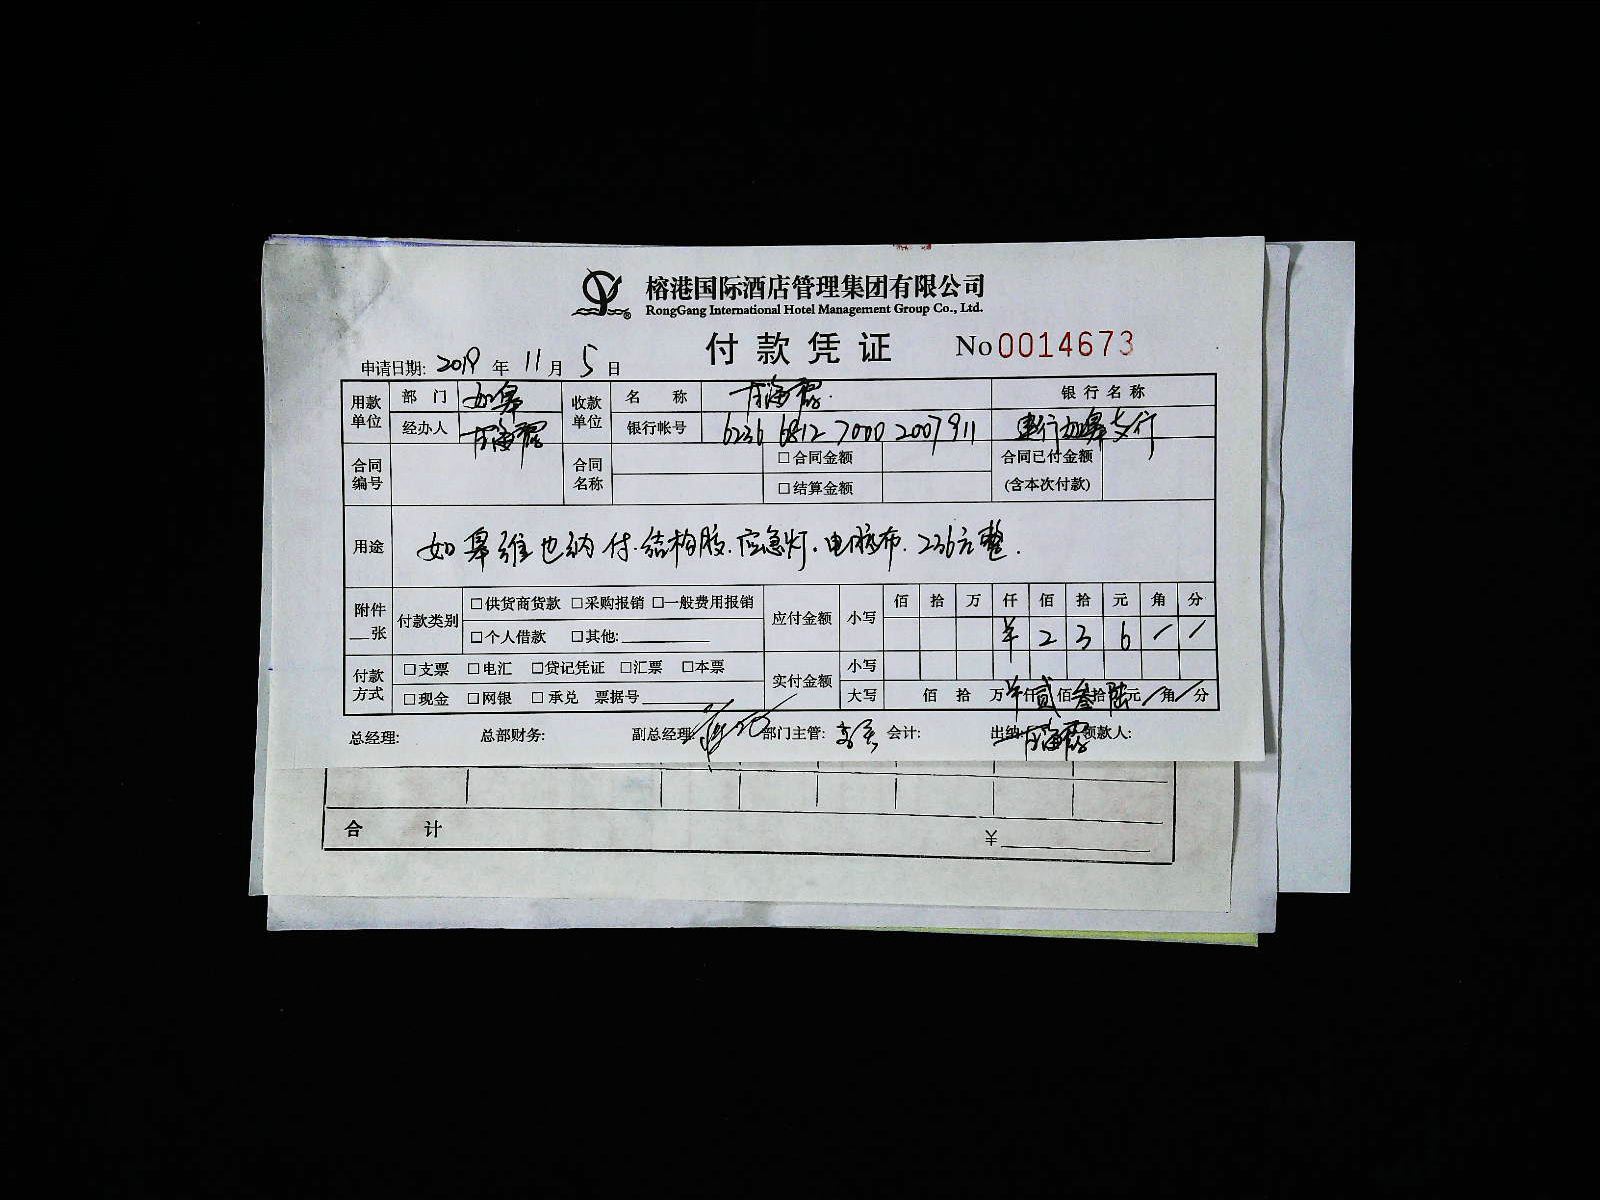 榕港国际酒店管理集团有限公司
RongGang International Hotel Management Group Co., Ltd.
付款凭证 No 0014673
申请日期: 2019 年 11 月 5 日
用款单位 部门 如皋 收款单位 名称 银行名称
经办人 银行帐号 6236 6812 7000 2007911 建行如皋支行
合同编号 合同名称 □合同金额 合同已付金额
□结算金额 (含本次付款)
用途 如皋维也纳付.结构胶.应急灯.电脑布.236元整.
附件__张 付款类别 □供货商货款 □采购报销 □一般费用报销 应付金额 小写 佰 拾 万 仟 佰 拾 元 角 分
□个人借款 □其他: ¥ 2 3 6 / /
付款方式 □支票 □电汇 □贷记凭证 □汇票 □本票 实付金额 小写
□现金 □网银 □承兑 票据号 大写 佰 拾 万 ¥ 仟 贰 佰 叁 拾 陆 元 / 角 / 分
总经理: 总部财务: 副总经理: 部门主管: 会计: 出纳: 领款人:
合计 ¥